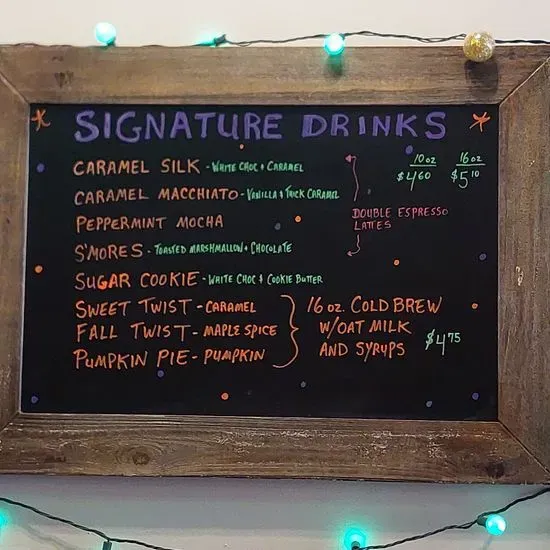 SIGNATURE DRINKS
10 oz 16 oz
$4.60 $5.10
CARAMEL SILK - WHITE CHOC + CARAMEL
CARAMEL MACCHIATO - VANILLA & THICK CARAMEL
PEPPERMINT MOCHA
S'MORES - TOASTED MARSHMALLOW + CHOCOLATE
DOUBLE ESPRESSO
LATTES
SUGAR COOKIE - WHITE CHOC & COOKIE BUTTER
SWEET TWIST - CARAMEL
FALL TWIST - MAPLE SPICE
PUMPKIN PIE - PUMPKIN
16 oz. COLD BREW
W/OAT MILK
AND SYRUPS $4.75